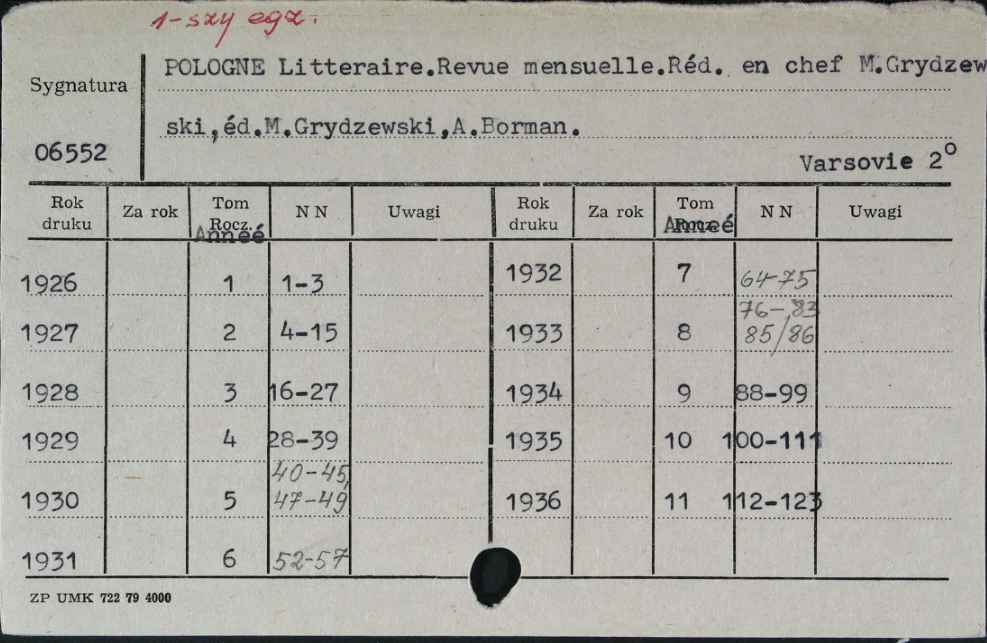 1-szy egz.
POLOGNE Litteraire.Revue mensuelle.Réd. en chef M.Grydzew
Sygnatura
ski,éd.M.Grydzewski,A.Borman.
06552
Varsovie 2º
Rok druku Za rok Tom Rocz. Anneé N N Uwagi Rok druku Za rok Tom Rocz. Anneé N N Uwagi
1926 1 1-3 1932 7 64-75
1927 2 4-15 1933 8 76-,83 85/86
1928 3 16-27 1934 9 88-99
1929 4 28-39 1935 10 100-111
1930 5 40-45, 47-49 1936 11 112-123
1931 6 52-57
ZP UMK 722 79 4000